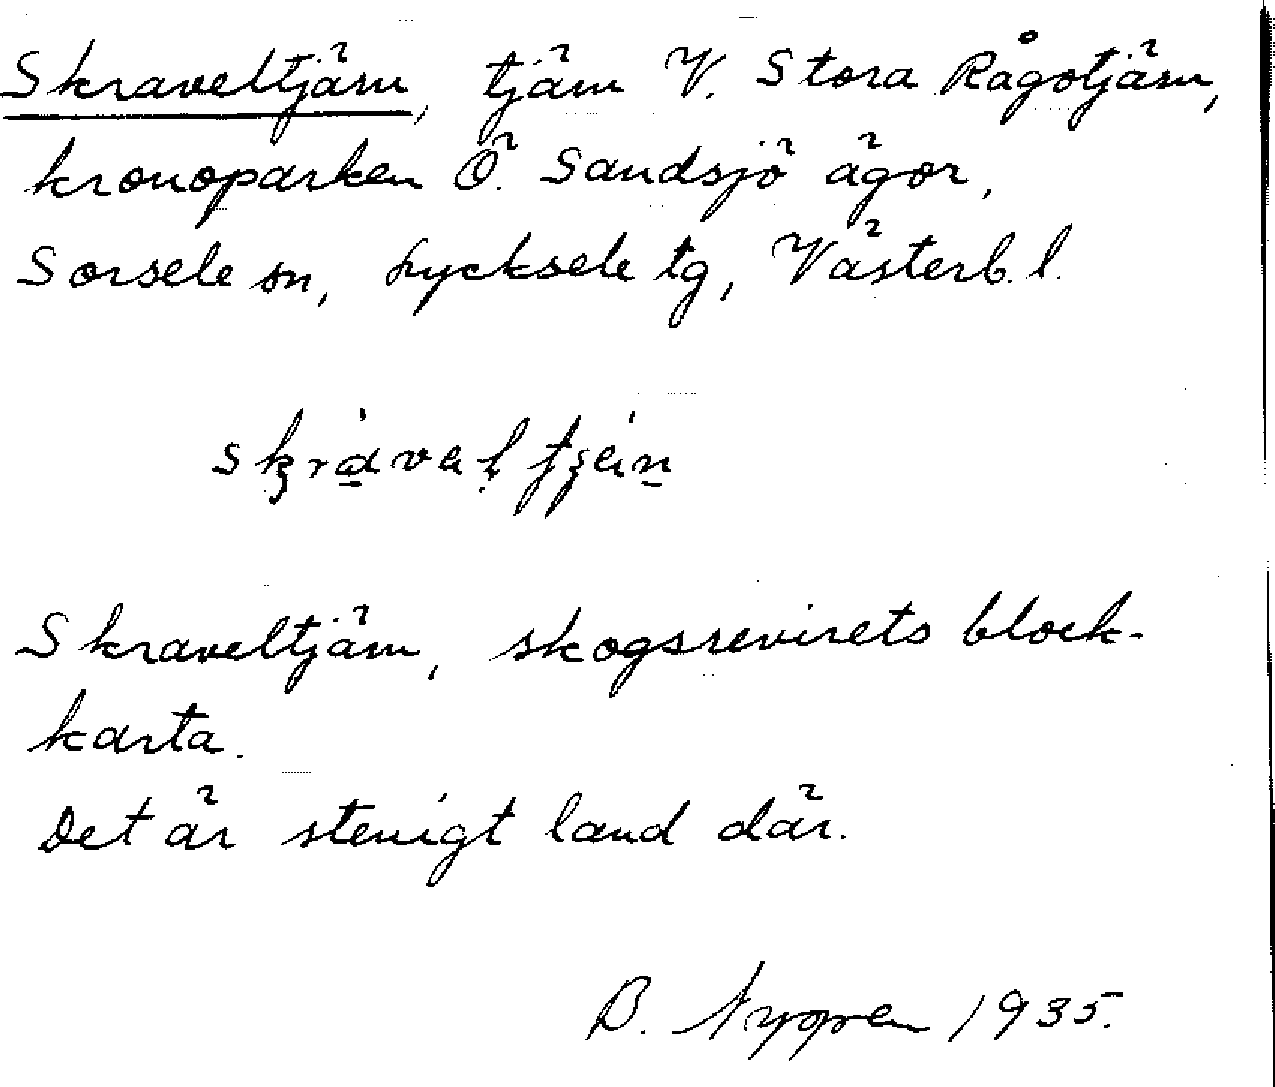 Skraveltjärn, tjärn V. Stora Rågotjärn,
kronoparken Ö. Sandsjö ägor,
Sorsele sn, Lycksele tg, Västerb. l.
Skraveltjärn, skogsrevirets block-
karta.
Det är stenigt land där.
B. Nygren 1935.